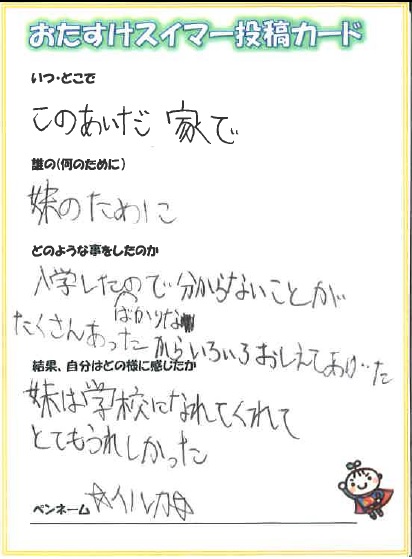 おたすけスイマー投稿カード
いつ・どこで
このあいだ 家で
誰の(何のために)
妹のために
どのような事をしたのか
入学したので分からないことが
ばかりな
たくさんあったからいろいろおしえてあげた
結果、自分はどの様に感じたか
妹は学校になれてくれて
とてもうれしかった
ペンネーム ☆イルカ☆